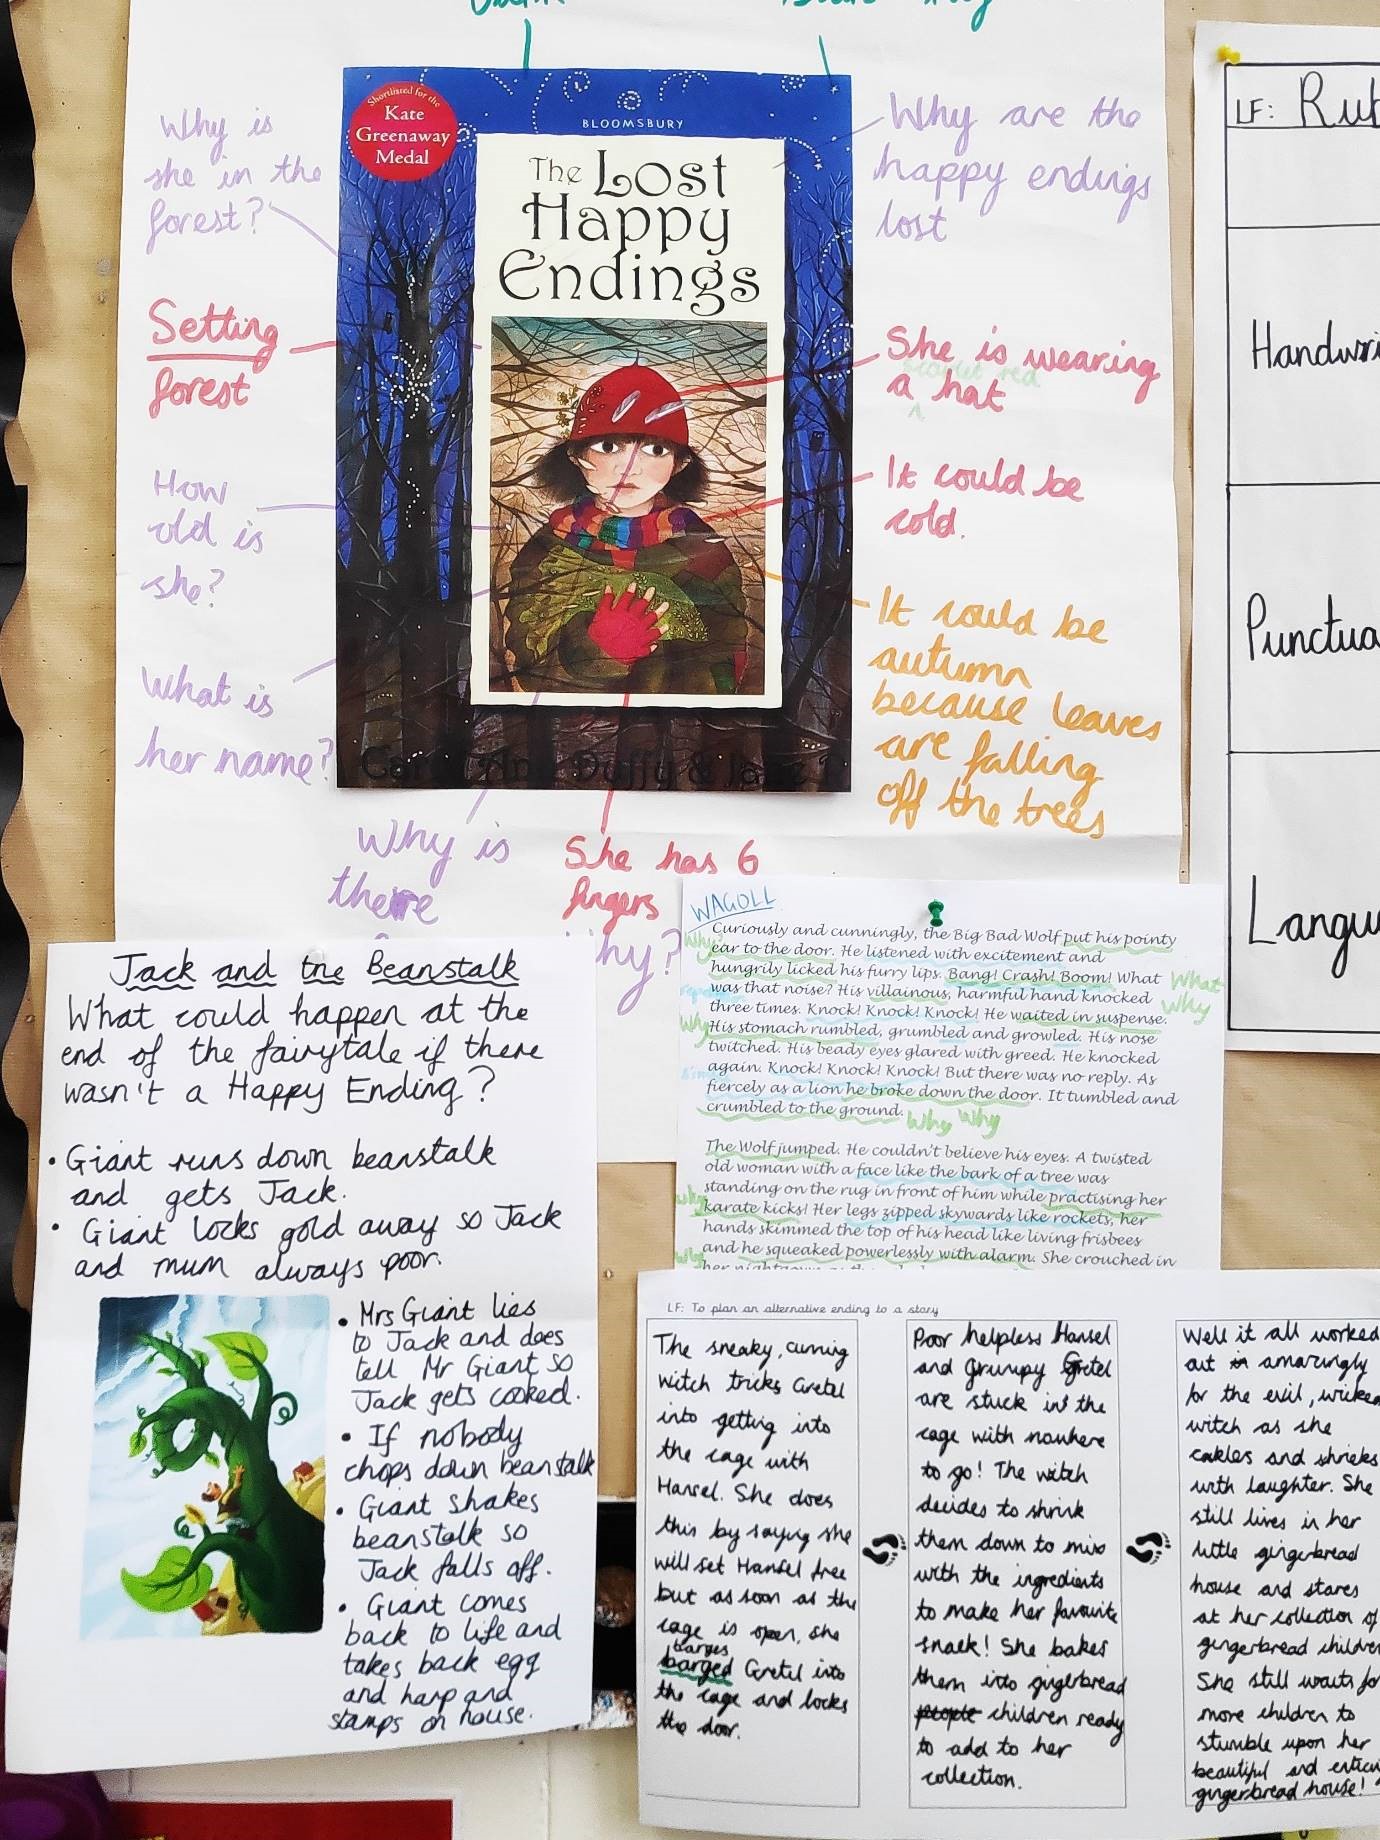 Why is
she in the
forest?
Setting
forest
How
old is
she?
What is
her name?
Why is
there
She has 6
fingers
Why?
Shortlisted for the
Kate
Greenaway
Medal
BLOOMSBURY
The Lost
Happy
Endings
Why are the
happy endings
lost
She is wearing
scarlet red
a hat
It could be
cold.
It could be
autumn
because leaves
are falling
off the trees
LF:
Jack and the Beanstalk
What could happen at the
end of the fairytale if there
wasn't a Happy Ending?
• Giant runs down beanstalk
and gets Jack.
• Giant locks gold away so Jack
and mum always poor.
• Mrs Giant lies
to Jack and does
tell Mr Giant so
Jack gets cooked.
• If nobody
chops down beanstalk
• Giant shakes
beanstalk so
Jack falls off.
• Giant comes
back to life and
takes back egg
and harp and
stamps on house.
WAGOLL
Curiously and cunningly, the Big Bad Wolf put his pointy
Why?
ear to the door. He listened with excitement and
hungrily licked his furry lips. Bang! Crash! Boom! What
What
was that noise? His villainous, harmful hand knocked
Why
three times. Knock! Knock! Knock! He waited in suspense.
Why
His stomach rumbled, grumbled and growled. His nose
twitched. His beady eyes glared with greed. He knocked
again. Knock! Knock! Knock! But there was no reply. As
fiercely as a lion he broke down the door. It tumbled and
crumbled to the ground.
Why Why
The Wolf jumped. He couldn't believe his eyes. A twisted
old woman with a face like the bark of a tree was
standing on the rug in front of him while practising her
Why
karate kicks! Her legs zipped skywards like rockets, her
hands skimmed the top of his head like living frisbees
and he squeaked powerlessly with alarm. She crouched in
Why
LF: To plan an alternative ending to a story
The sneaky, cunning
witch tricks Gretel
into getting into
the cage with
Hansel. She does
this by saying she
will set Hansel free
but as soon as the
cage is open, she
barges
barged Gretel into
the cage and locks
the door.
Poor helpless Hansel
and Grumpy Gretel
are stuck in the
cage with nowhere
to go! The witch
decides to shrink
them down to mix
with the ingredients
to make her favourite
snack! She bakes
them into gingerbread
people children ready
to add to her
collection.
Well it all worked
out in amazingly
for the evil, wicked
witch as she
cakles and shrieks
with laughter. She
still lives in her
little gingerbread
house and stares
at her collection of
gingerbread children
She still waits for
more children to
stumble upon her
beautiful and
gingerbread house!